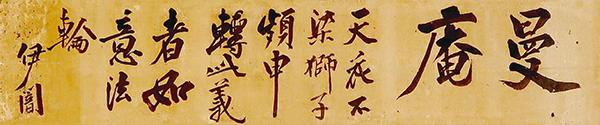 曼庵
天不
染獅子
頻申
轉此義
者如
意法
輪
伊闇